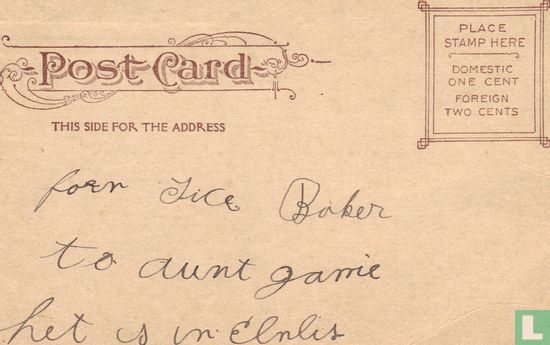 Post Card
THIS SIDE FOR THE ADDRESS
PLACE
STAMP HERE
DOMESTIC
ONE CENT
FOREIGN
TWO CENTS
forn Baker
to aunt
is in
L